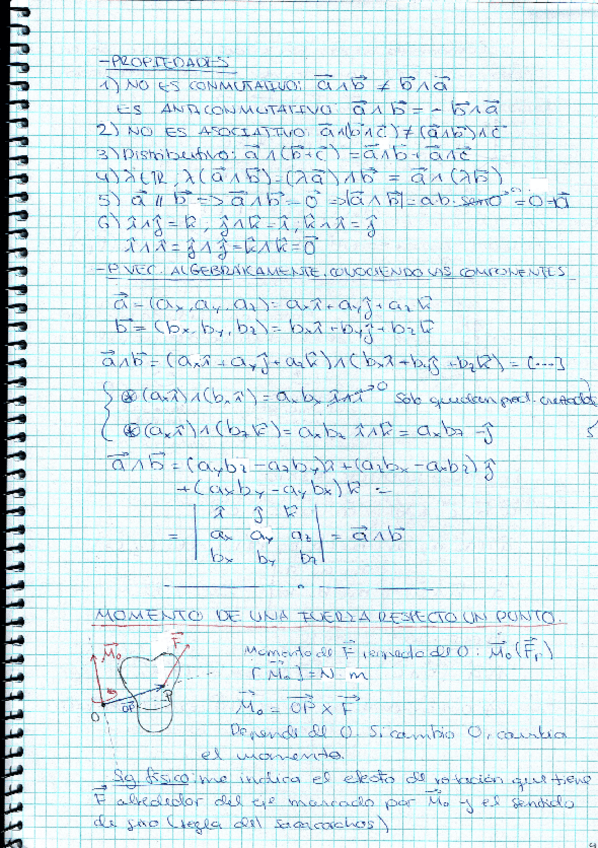 - PROPIEDADES
1) NO ES CONMUTATIVO: a⃗∧b⃗ ≠ b⃗∧a⃗
ES ANTICONMUTATIVO: a⃗∧b⃗ = - b⃗∧a⃗
2) NO ES ASOCIATIVO: a⃗∧(b⃗∧c⃗) ≠ (a⃗∧b⃗)∧c⃗
3) Distributivo: a⃗∧(b⃗+c⃗) = a⃗∧b⃗ + a⃗∧c⃗
4) λ∈ℝ, λ(a⃗∧b⃗) = (λa⃗)∧b⃗ = a⃗∧(λb⃗)
5) a⃗ ∥ b⃗ => a⃗∧b⃗ = 0⃗ => |a⃗∧b⃗| = a·b·sen0° = 0
6) i⃗∧j⃗ = k⃗, j⃗∧k⃗ = i⃗, k⃗∧i⃗ = j⃗
i⃗∧i⃗ = j⃗∧j⃗ = k⃗∧k⃗ = 0⃗
- P. VEC. ALGEBRAICAMENTE, CONOCIENDO LAS COMPONENTES
a⃗ = (ax, ay, az) = ax i⃗ + ay j⃗ + az k⃗
b⃗ = (bx, by, bz) = bx i⃗ + by j⃗ + bz k⃗
a⃗∧b⃗ = (ax i⃗ + ay j⃗ + az k⃗)∧(bx i⃗ + by j⃗ + bz k⃗) = [...]
⊗(ax i⃗)∧(bx i⃗) = ax bx i⃗∧i⃗ → 0 Solo quedan prod. cruzados
⊗(ax i⃗)∧(bz k⃗) = ax bz i⃗∧k⃗ = ax bz -j⃗
a⃗∧b⃗ = (ay bz - az by) i⃗ + (az bx - ax bz) j⃗
+ (ax by - ay bx) k⃗ =
| i⃗ j⃗ k⃗ |
= | ax ay az | = a⃗∧b⃗
| bx by bz |
MOMENTO DE UNA FUERZA RESPECTO UN PUNTO.
M⃗o F⃗ P O OP
Momento de F⃗ respecto de O: M⃗o(F⃗)
[M⃗o] = N·m
M⃗o = OP⃗ × F⃗
Depende de O. Si cambio O, cambia
el momento.
Sg. físico: me indica el efecto de rotación que tiene
F⃗ alrededor del eje marcado por M⃗o y el sentido
de giro (regla del sacacorchos)